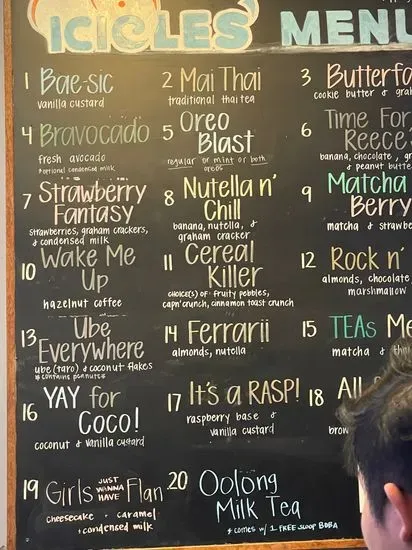 ICICLES MENU
1 Bae-sic
vanilla custard
2 Mai Thai
traditional thai tea
3 Butterf
cookie butter & gra
4 Bravocado
fresh avocado
*optional condensed milk
5 Oreo
Blast
regular or mint or both
oreos
6 Time For
Reece
banana, chocolate, gr
& peanut butte
7 Strawberry
Fantasy
strawberries, graham crackers,
& condensed milk
8 Nutella n'
Chill
banana, nutella, &
graham cracker
9 Matcha
Berry
matcha & strawbe
10 Wake Me
Up
hazelnut coffee
11 Cereal
Killer
choice(s) of: fruity pebbles,
capn'crunch, cinnamon toast crunch
12 Rock n'
almonds, chocolate
marshmallow
13 Ube
Everywhere
ube (taro) & coconut flakes
*contains peanuts*
14 Ferrarii
almonds, nutella
15 TEAs Me
matcha & th
16 YAY for
Coco!
coconut & vanilla custard
17 It's a RASP!
raspberry base &
vanilla custard
18 All
brow
19 Girls JUST WANNA HAVE Flan
cheesecake + caramel
+ condensed milk
20 Oolong
Milk Tea
* comes w/ 1 FREE scoop BOBA